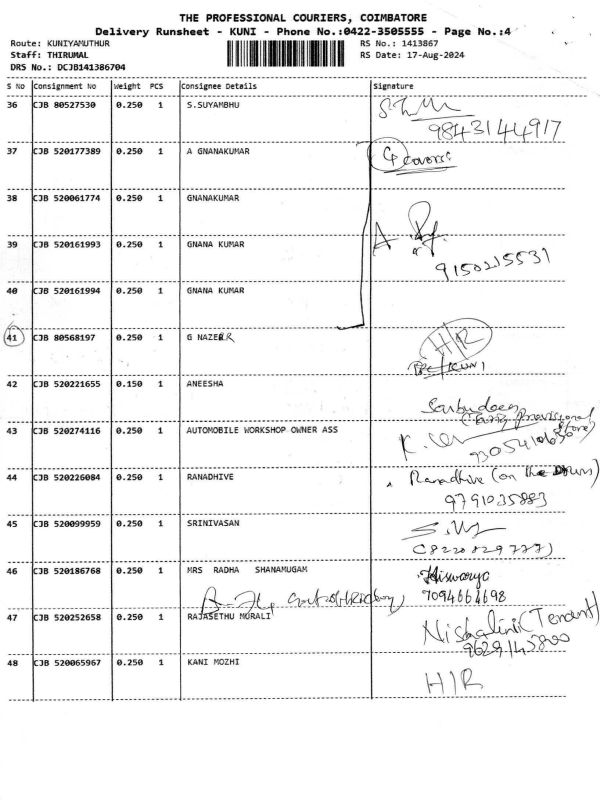 THE PROFESSIONAL COURIERS, COIMBATORE
Delivery Runsheet - KUNI - Phone No.:0422-3505555 - Page No.:4
Route: KUNIYAMUTHUR RS No.: 1413867
Staff: THIRUMAL RS Date: 17-Aug-2024
DRS No.: DCJB141386704
S No Consignment No Weight PCS Consignee Details Signature
36 CJB 80527530 0.250 1 S.SUYAMBHU
9843144917
37 CJB 520177389 0.250 1 A GNANAKUMAR
38 CJB 520061774 0.250 1 GNANAKUMAR
39 CJB 520161993 0.250 1 GNANA KUMAR
9150215531
40 CJB 520161994 0.250 1 GNANA KUMAR
41 CJB 80568197 0.250 1 G NAZERR H/R
42 CJB 520221655 0.150 1 ANEESHA
43 CJB 520274116 0.250 1 AUTOMOBILE WORKSHOP OWNER ASS
44 CJB 520226084 0.250 1 RANADHIVE Ranadhive (on the
9791035883
45 CJB 520099959 0.250 1 SRINIVASAN
46 CJB 520186768 0.250 1 MRS RADHA SHANAMUGAM
7094664698
47 CJB 520252658 0.250 1 RAJASETHU MURALI Nishalini (Tenant)
48 CJB 520065967 0.250 1 KANI MOZHI
H/R